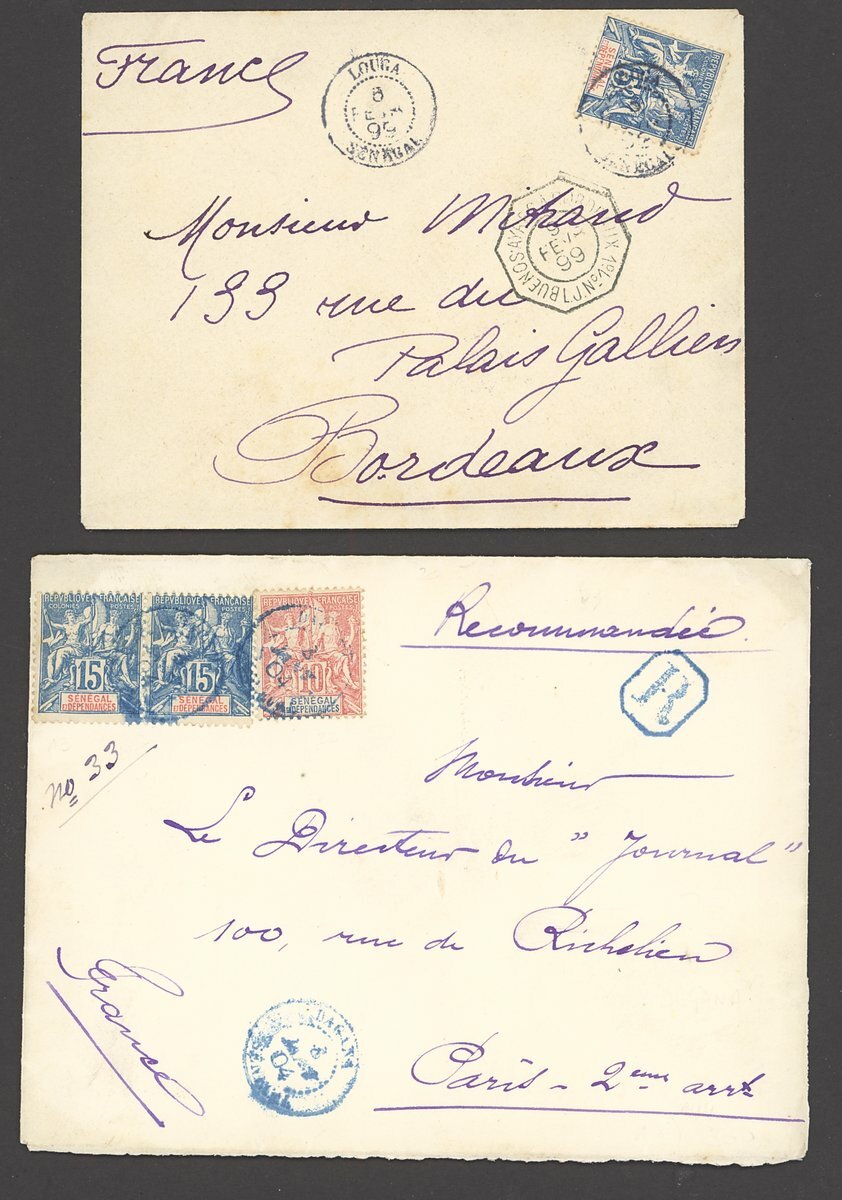 France
LOUGA
6
FEVR
99
SENEGAL
SENEGAL
REPUBLIQUE FRANÇAISE
SENEGAL
Monsieur Mihaud
BUENOS-AYRES A BORDEAUX 1º L.J.Nº1
FEVR
99
133 rue du
Palais Gallien
Bordeaux
REPUBLIQUE FRANÇAISE
COLONIES POSTES
15
SÉNÉGAL
ET DÉPENDANCES
REPUBLIQUE FRANÇAISE
COLONIES POSTES
15
SÉNÉGAL
ET DÉPENDANCES
REPUBLIQUE FRANÇAISE
10
SÉNÉGAL
ET DÉPENDANCES
Recommandée
R
no 33
Monsieur
Le Directeur du "Journal"
100, rue de Richelieu
France
DAGANA
04
Paris - 2eme arrt